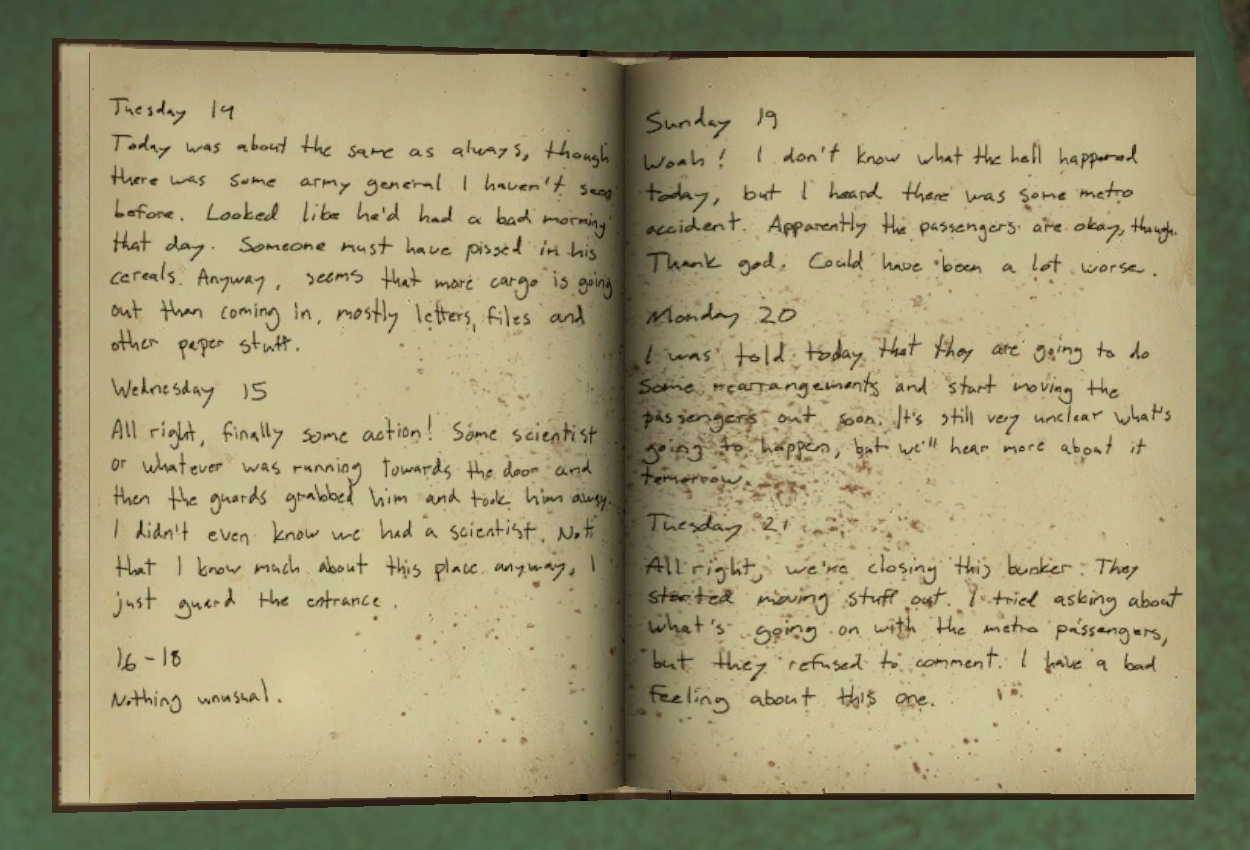 Tuesday 14
Today was about the same as always, though
there was some army general I haven't seen
before. Looked like he'd had a bad morning
that day. Someone must have pissed in his
cereals. Anyway, seems that more cargo is going
out than coming in, mostly letters, files and
other paper stuff.
Wednesday 15
All right, finally some action! Some scientist
or whatever was running towards the door and
then the guards grabbed him and took him away.
I didn't even know we had a scientist. Not
that I know much about this place anyway, I
just guard the entrance.
16-18
Nothing unusual.
Sunday 19
Woah! I don't know what the hell happened
today, but I heard there was some metro
accident. Apparently the passengers are okay, though.
Thank god. Could have been a lot worse.
Monday 20
I was told today that they are going to do
some rearrangements and start moving the
passengers out soon. It's still very unclear what's
going to happen, but we'll hear more about it
tomorrow.
Tuesday 21
All right, we're closing this bunker. They
started moving stuff out. I tried asking about
what's going on with the metro passengers,
but they refused to comment. I have a bad
feeling about this one.